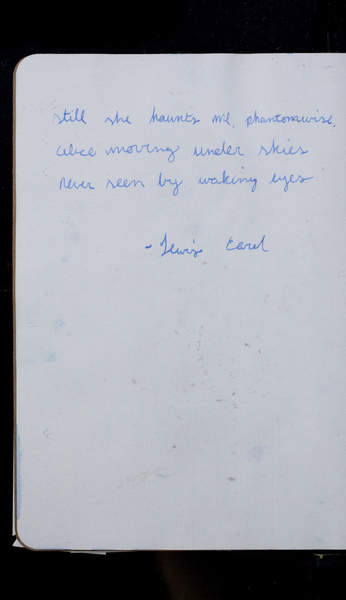 still she haunts me, phantomwise,
Alice moving under skies
never seen by waking eyes
- Lewis Carol